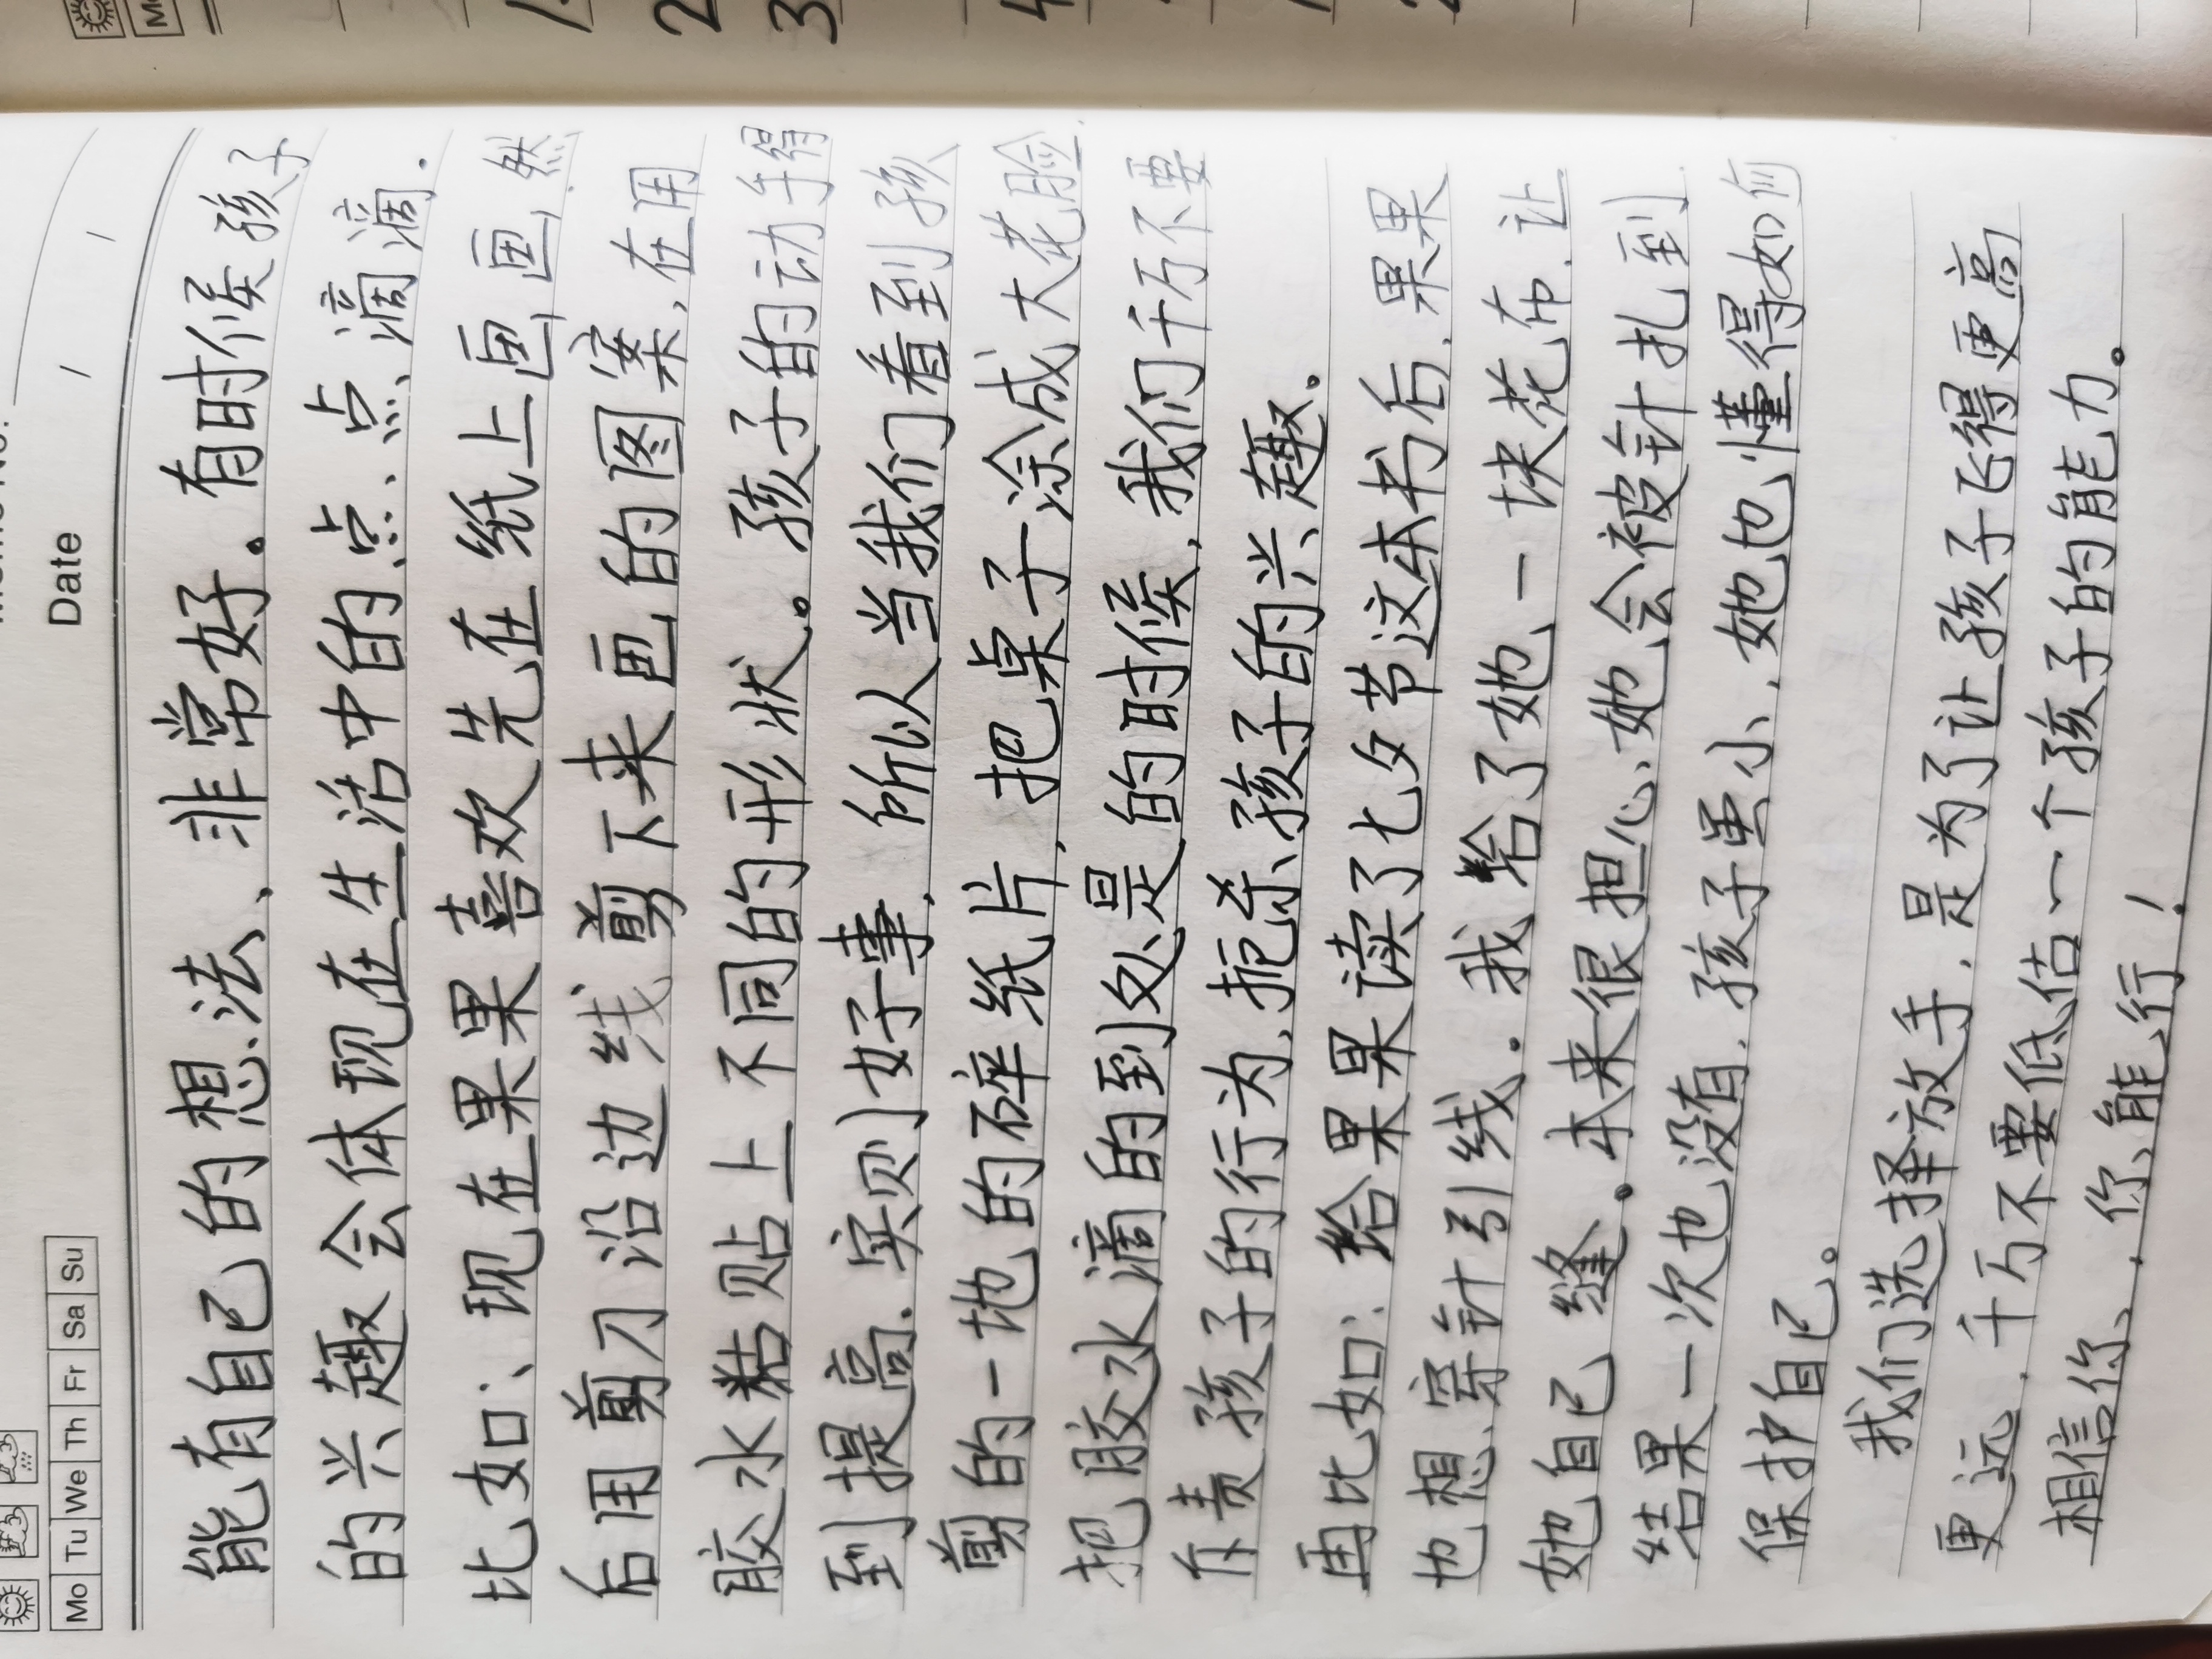 Date / /
Mo Tu We Th Fr Sa Su
能有自己的想法、非常好。有时候孩子
的兴趣会体现在生活中的点、点、滴滴.
比如:、现在果果喜欢先在纸上画,画,然
后用剪刀沿边线剪下来画的图案,在用
胶水粘贴上不同的形状。孩子的动手得
到提高.实则好事,所以当我们看到孩
剪的一地的碎纸片,把桌子涂成大花脸.
把胶水滴的到处是的时候,我们千万不要
斥责孩子的行为,扼杀孩子的兴趣。
再比如:给果果读了七夕节这本书后.果果
也想穿针引线。我给了她一块花布.让
她自己缝。本来很担心她会被针扎到.
结果一次也没有.孩子虽小,她也懂得如何
保护自己。
我们选择放手,是为了让孩子飞得更高
更远,千万不要低估一个孩子的能力。
相信你,你能行!
1.
2
3
4